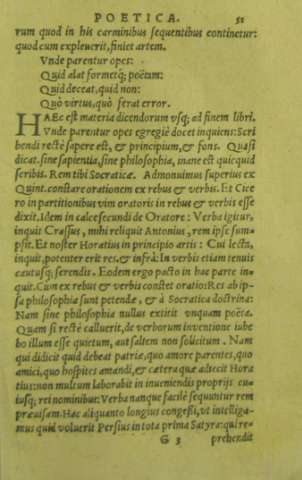 POETICA. 51
rum quod in his carminibus sequentibus continetur:
quod cum expleuerit, finiet artem.
Vnde parentur opes:
Quid alat formetq; poëtam:
Quid deceat, quid non:
Quò virtus, quò ferat error.
HAEc est materia dicendorum vsq; ad finem libri.
Vnde parentur opes egregiè docet inquiens: Scri
bendi rectè sapere est, & principium, & fons. Quasi
dicat. sine sapientia, sine philosophia, inane est quicquid
scribis. Rem tibi Socraticæ. Admonuimus superius ex
Quint. constare orationem ex rebus & verbis. Et Cice
ro in partitionibus vim oratoris in rebus & verbis esse
dixit. Idem in calce secundi de Oratore: Verba igitur,
inquit Crassus, mihi reliquit Antonius, rem ipse sum-
psit. Et noster Horatius in principio artis: Cui lecta,
inquit, potenter erit res. & infrà: In verbis etiam tenuis
cautusq; serendis. Eodem ergo pacto in hac parte in-
quit. Cum ex rebus & verbis constet oratio: Res ab ip-
sa philosophia sunt petendæ, & à Socratica doctrina:
Nam sine philosophia nullus extitit vnquam poëta.
Quam si rectè calluerit, de verborum inuentione iube
bo illum esse quietum, aut saltem non solicitum. Nam
qui didicit quid debeat patriæ, quo amore parentes, quo
amici, quo hospites amandi, & cætera quæ adiecit Hora
tius: non multum laborabit in inueniendis proprijs cu-
iusq; rei nominibus: Verba nanque facilè sequuntur rem
præuisam. Hæc aliquanto longius congessi, vt intelliga-
mus quid voluerit Persius in tota prima Satyra: qui re-
G 3 prehendit